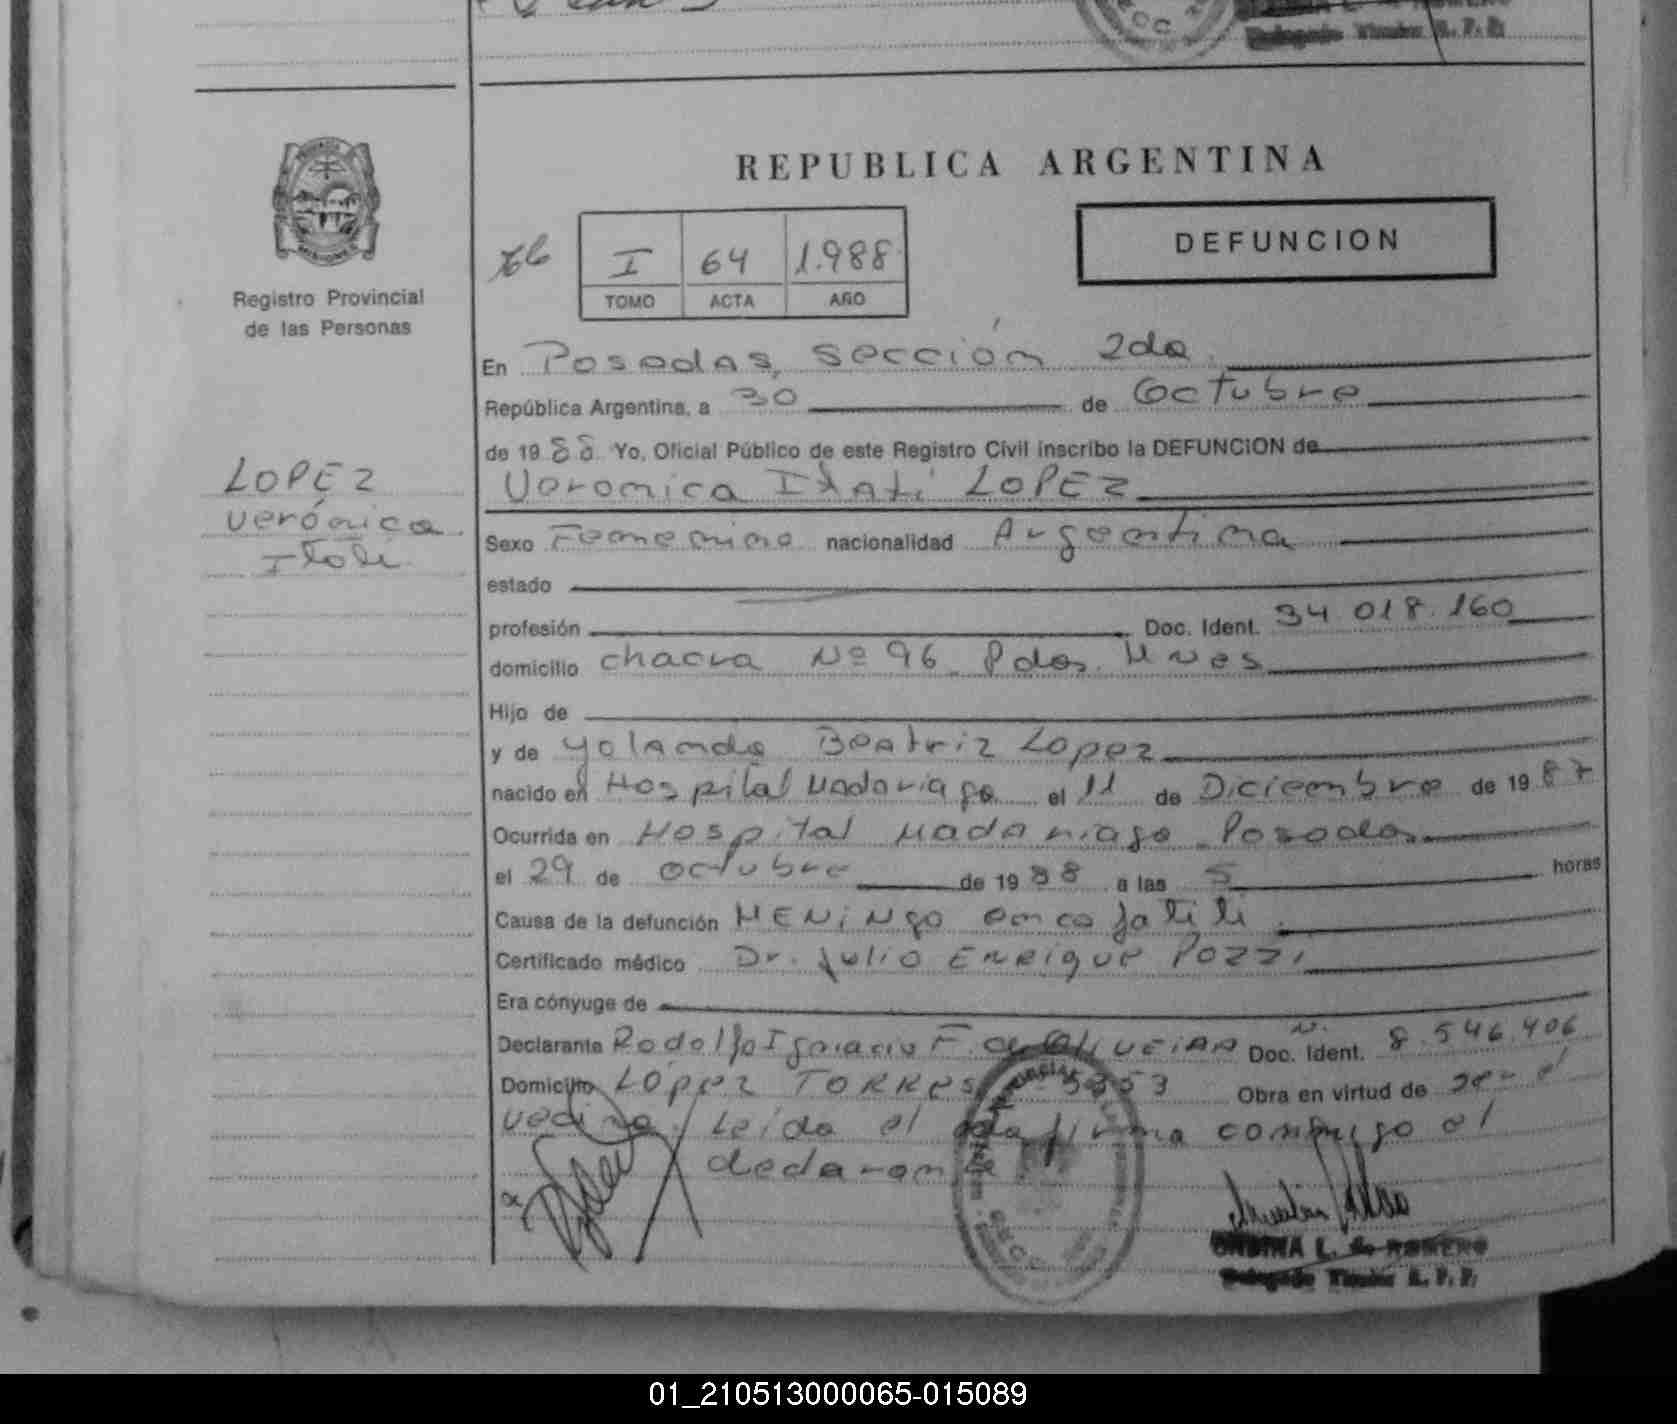 REPUBLICA ARGENTINA
DEFUNCION
I 64 1.988
TOMO ACTA AÑO
Registro Provincial
de las Personas
LOPEZ
Verónica
Itati
En Posadas, sección 2da.
República Argentina, a 30 de Octubre
de 1988 Yo, Oficial Público de este Registro Civil inscribo la DEFUNCION de
Veronica Itati LOPEZ
Sexo Femenino nacionalidad Argentina
estado
profesión Doc. Ident. 34.018.160
domicilio chacra Nº 96 Pdas. Mnes
Hijo de
y de Yolanda Beatriz Lopez
nacido en Hospital Madariaga el 11 de Diciembre de 1987
Ocurrida en Hospital Madariaga Posadas
el 29 de octubre de 1988 a las 5 horas
Causa de la defunción MENINGO encefaliti
Certificado médico Dr. Julio Enrique Pozzi
Era cónyuge de
Declarante Rodolfo Ignacio F. de Oliveira Doc. Ident. 8.546.406
Domicilio López TORRES 5353 Obra en virtud de ser el
vecino. Leída el acta firma conmigo el
declarante
ONDINA L. de ROMERO
Delegado Titular R. P. P.
01_210513000065-015089